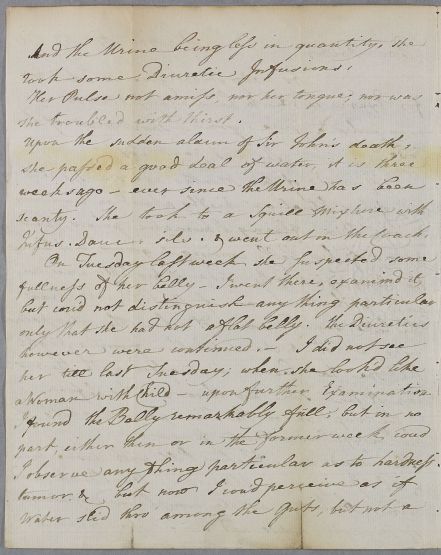 And the Urine being less in quantity, she
took some Diuretic Infusions.
Her Pulse not amiss, nor her tongue; nor was
she troubled with thirst.
Upon the sudden alarm of Sir John's death,
she passed a good deal of water, it is three
weeks ago - ever since the Urine has been
scanty. She took to a Squill Mixture with
Infus. Dauci silv. & went out in the Coach.
On Tuesday last week she suspected some
fullness of her belly - I went there, examin'd it,
but could not distinguish any thing particular
only that she had not a flat belly. The Diuretics
however were continued. - I did not see
her till last Tuesday; when she look'd like
a Woman with Child - upon further Examination
I found the Belly remarkably full; but in no
part, either then or in the former week, could
I observe any thing particular as to hardness
tumor. & but now I could perceive as if
Water slid thro' among the Guts, but not a